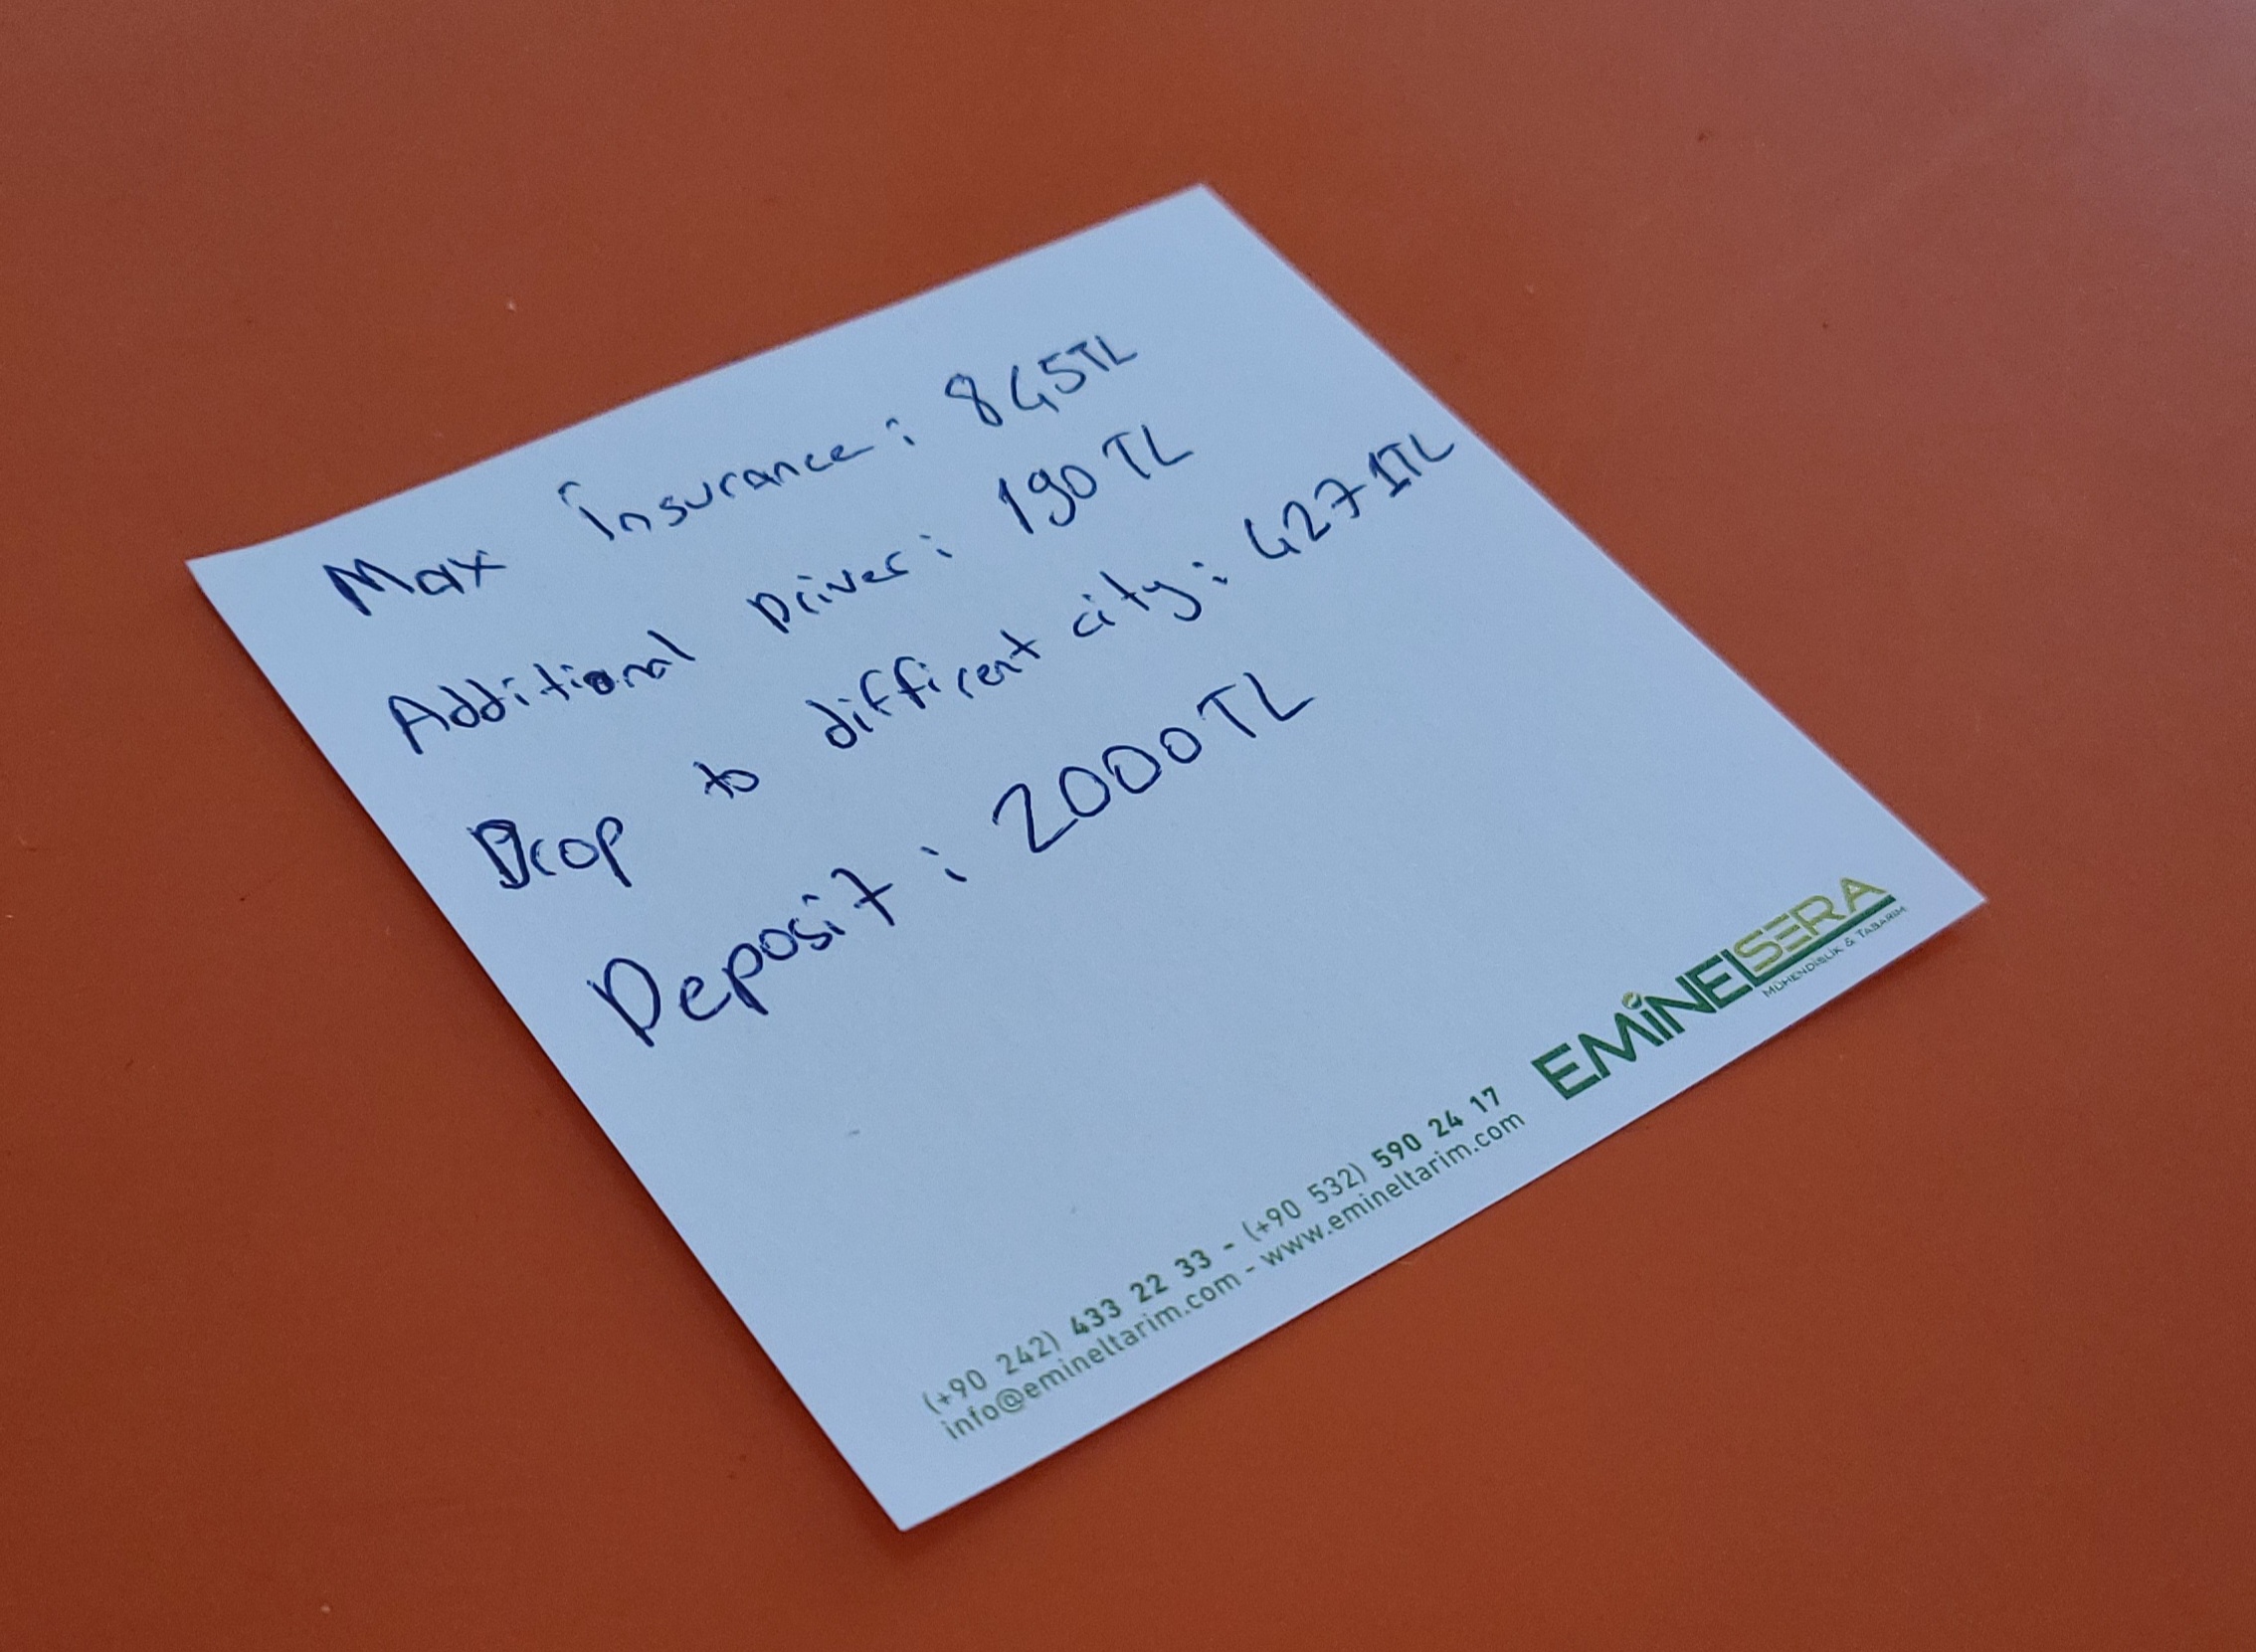 Max İnsurance: 845TL
Additional Driver: 190 TL
Drop to diffirent city: 4271TL
Deposit: 2000TL
EMİNELSERA
MÜHENDİSLİK & TASARIM
(+90 242) 433 22 33 - (+90 532) 590 24 17
info@emineltarim.com - www.emineltarim.com